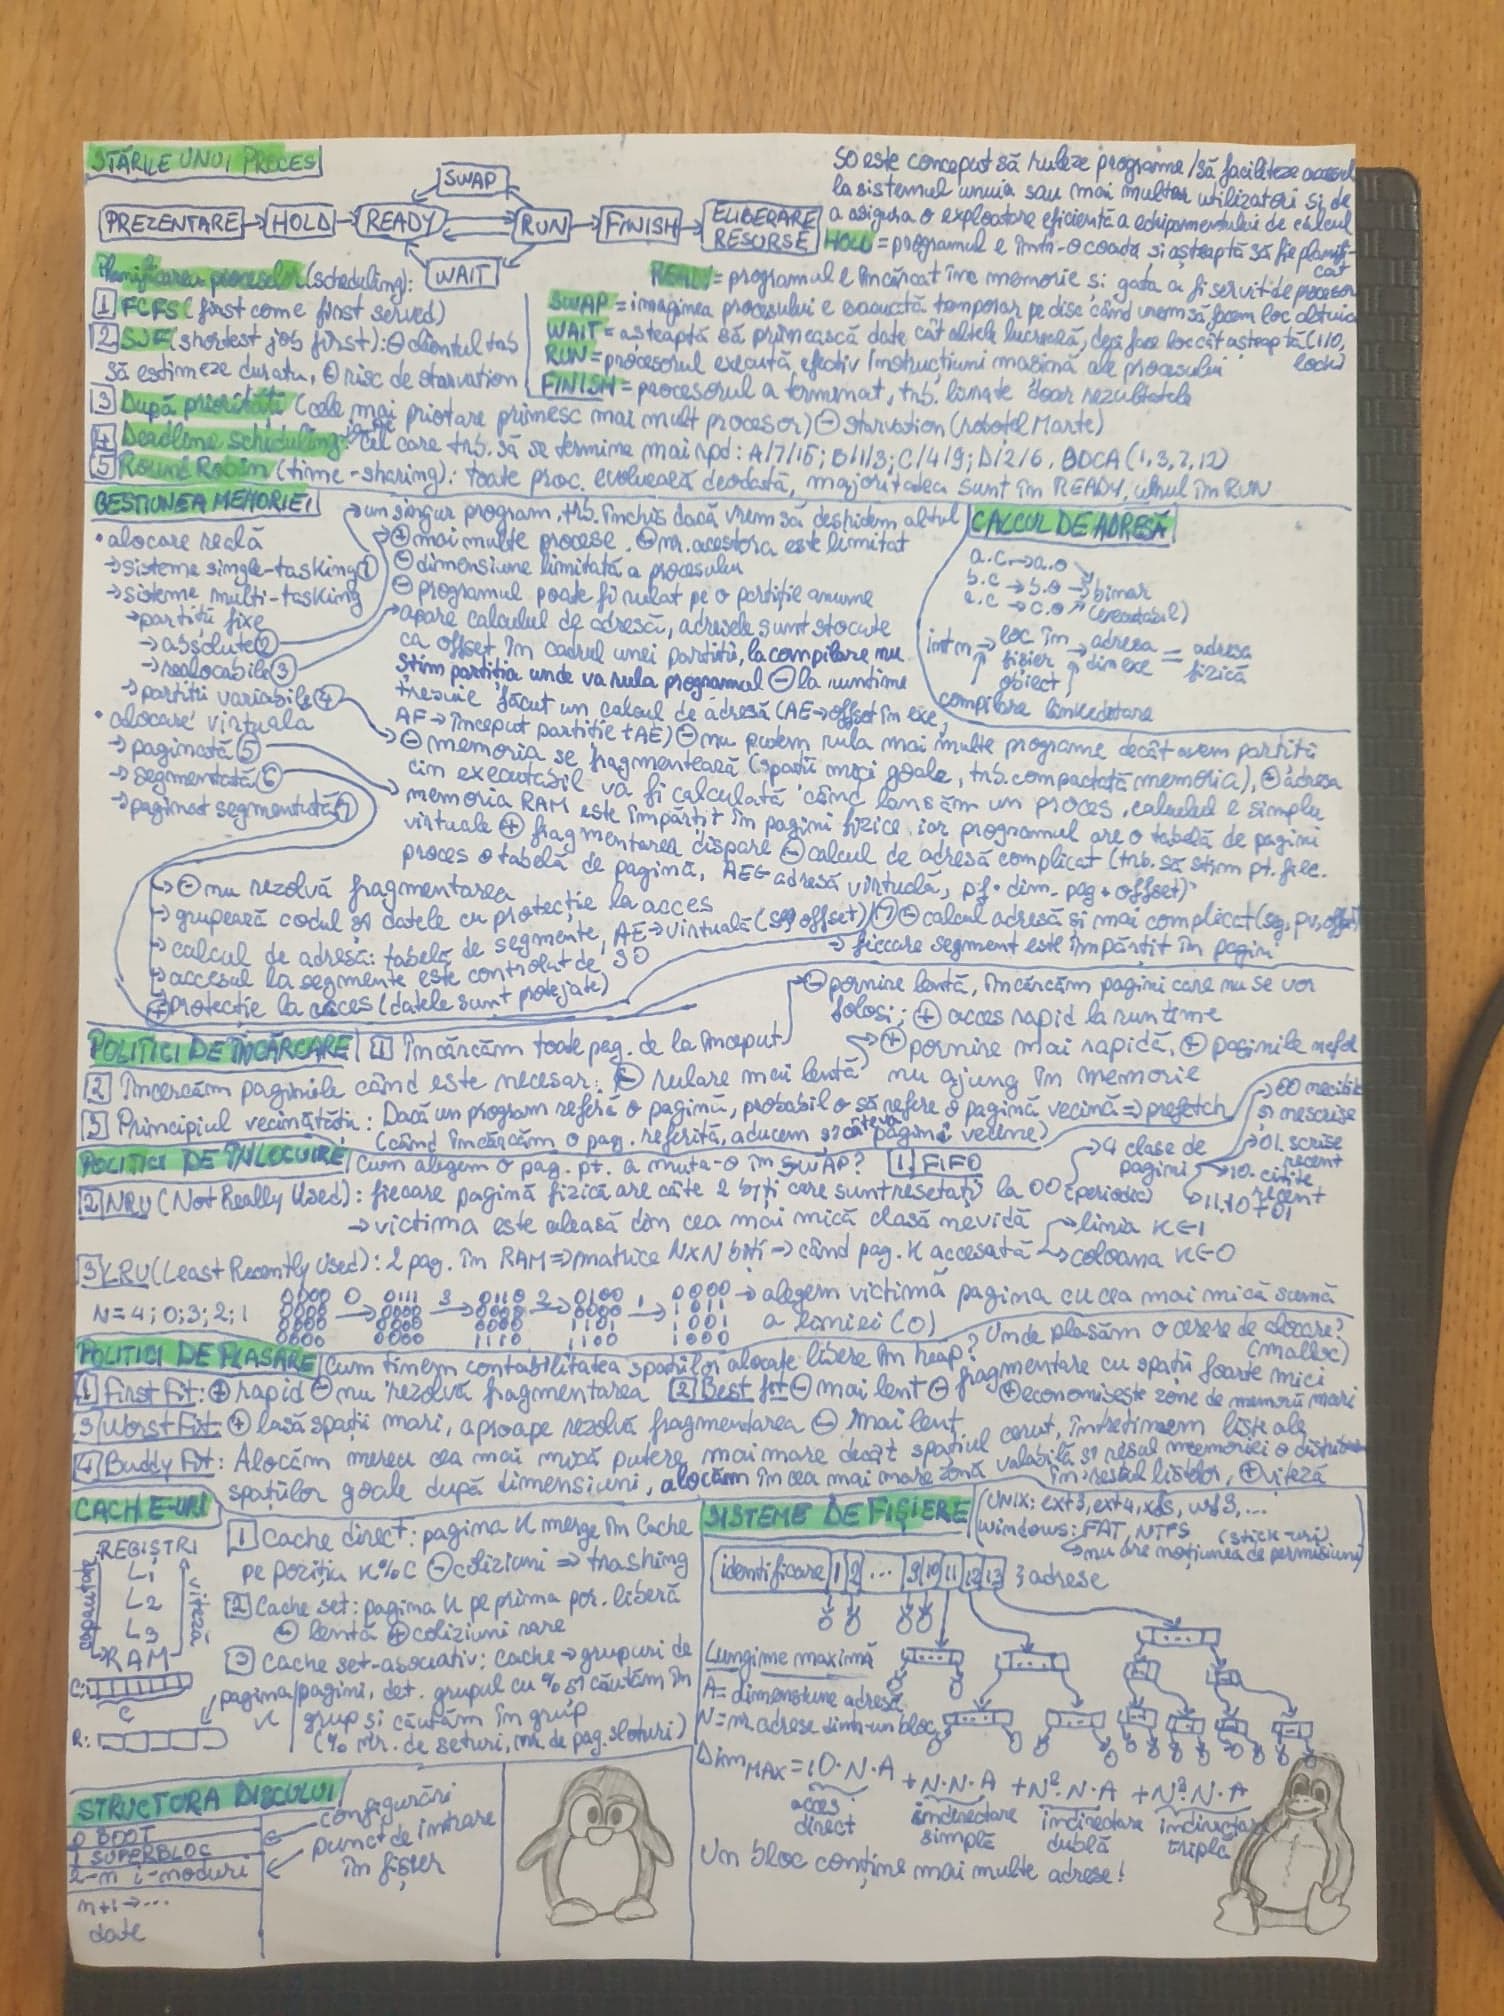 STĂRILE UNUI PROCES
SO este conceput să ruleze programe/să faciliteze accesul
la sistemul unuia sau mai multor utilizatori și de
a asigura o exploatare eficientă a echipamentului de calcul
SWAP
PREZENTARE HOLD READY RUN FINISH ELIBERARE RESURSE
WAIT
HOLD = programul e într-o coadă și așteaptă să fie planificat
READY = programul e încărcat în memorie și gata a fi servit de procesor
SWAP = imaginea procesului e evacuată temporar pe disc când vrem să facem loc altuia
WAIT = așteaptă să primească date cât altele lucrează, deja face loc cât așteaptă (I/O, lock)
RUN = procesorul execută efectiv instrucțiuni mașină ale procesului
FINISH = procesorul a terminat, trb. livrate doar rezultatele
Planificarea proceselor (scheduling):
1 FCFS (first come first served)
2 SJF (shortest job first): ⊖ clientul trb
să estimeze durata, ⊖ risc de starvation
3 După priorități (cele mai priotare primesc mai mult procesor) ⊖ starvation (robotel Marte)
4 Deadline scheduling: cel care trb. să se termine mai rpd: A/7/15; B/1/3; C/4/9; D/2/6, BDCA (1, 3, 7, 12)
5 Round Robin (time-sharing): toate proc. evoluează deodată, majoritatea sunt în READY, unul în RUN
GESTIUNEA MEMORIEI
• alocare reală
→ sisteme single-tasking 1
→ sisteme multi-tasking
→ partiții fixe
→ absolute 2
→ realocabile 3
→ partiții variabile 4
• alocare virtuala
→ paginată 5
→ segmentată 6
→ paginat segmentată 7
→ un singur program, trb. închis dacă vrem să deshidem altul
⊕ mai multe procese ⊖ nr. acestora este limitat
⊖ dimensiune limitată a procesului
⊖ programul poate fi rulat pe o partiție anume
→ apare calculul de adresă, adresele sunt stocate
ca offset în cadrul unei partiții, la compilare nu
știm partiția unde va rula programul ⊖ la runtime
trebuie făcut un calcul de adresă (AE → offset în exe,
AF → început partiție + AE) ⊖ nu putem rula mai multe programe decât avem partiții
⊖ memoria se fragmentează (spații mici goale, trb. compactată memoria), ⊖ adresa
din executabil va fi calculată când lansăm un proces, calculul e simplu
memoria RAM este împărțit în pagini fizice, iar programul are o tabelă de pagini
virtuale ⊕ fragmentarea dispare ⊖ calcul de adresă complicat (trb. să știm pt. fiec.
proces o tabelă de pagină, AE= adresă virtuală, pf • dim_pag + offset)
CALCUL DE ADRESĂ
a.c → a.o
b.c → b.o → binar
c.c → c.o (executabil)
int m → loc în fișier obiect → adresa din exe = adresa fizică
compilare linkeditare
→ ⊖ nu rezolvă fragmentarea
→ grupează codul și datele cu protecție la acces
→ calcul de adresă: tabelă de segmente, AE → virtuală (seg offset)
→ accesul la segmente este controlat de SO
⊕ protecție la acces (datele sunt protejate)
7 ⊖ calcul adresă și mai complicat (sg, pv, offset)
→ fiecare segment este împărțit în pagini
POLITICI DE ÎNCĂRCARE 1 Încărcăm toate pag. de la început
⊖ pornire lentă, încărcăm pagini care nu se vor
folosi; ⊕ acces rapid la runtime
2 Încercăm paginile când este necesar: ⊖ rulare mai lentă
⊕ pornire mai rapidă, ⊕ paginile nefol
nu ajung în memorie
3 Principiul vecinătății: Dacă un program referă o pagină, probabil o să refere o pagină vecină ⇒ prefetch
(când încărcăm o pag. referită, aducem și câteva pagini vecine)
POLITICI DE ÎNLOCUIRE Cum alegem o pag. pt. a muta-o în SWAP? 1 FIFO
2 NRU (Not Really Used): fiecare pagină fizică are câte 2 biți care sunt resetați la 00 (periodic)
→ 4 clase de pagini
→ 00 necitite și nescrise
→ 01. scrise recent
→ 10. citite recent
→ 11. 10 + 01
→ victima este aleasă din cea mai mică clasă nevidă
3 LRU (Least Recently Used): 2 pag. în RAM ⇒ matrice N×N biți → când pag. K accesată
→ linia K ← 1
→ coloana K ← 0
N=4; 0; 3; 2; 1
0000 0 0111 3 0110 2 0100 1 0000
0000 → 0000 → 0000 → 0000 → 1011
0000 0000 0000 1101 1001
0000 0000 1110 1100 1000
→ alegem victimă pagina cu cea mai mică sumă
a liniei (0)
POLITICI DE PLASARE Cum ținem contabilitatea spațiilor alocate libere în heap?
Unde plasăm o cerere de alocare?
(malloc)
1 First Fit: ⊕ rapid ⊖ nu rezolvă fragmentarea 2 Best fit ⊖ mai lent ⊖ fragmentare cu spații foarte mici
⊕ economisește zone de memorii mari
3 Worst Fit: ⊕ lasă spații mari, aproape rezolvă fragmentarea ⊖ mai lent
4 Buddy Fit: Alocăm mereu cea mai mică putere mai mare decât spațiul cerut, întreținem liste ale
spațiilor goale după dimensiuni, alocăm în cea mai mare zonă valabilă și restul memoriei o
în restul listelor, ⊕ viteză
CACHE-URI
REGIȘTRI
L1
L2
L3
RAM
capacitate
viteză
C:
C
R:
pagina K
1 Cache direct: pagina K merge în Cache
pe poziția K%C ⊖ coliziuni ⇒ trashing
2 Cache set: pagina K pe prima poz. liberă
⊖ lentă ⊕ coliziuni rare
3 Cache set-asociativ: cache → grupuri de
pagini, det. grupul cu % și căutăm în
grup și căutăm în grup
(% nr. de seturi, nr. de pag. sloturi)
SISTEME DE FIȘIERE
UNIX: ext3, ext4, xfs, ...
Windows: FAT, NTFS (stick-uri)
→ nu are noțiunea de permisiuni
identificare 1 2 ... 9 10 11 12 13 } adrese
Lungime maximă
A = dimensiune adresă
N = nr. adrese dintr-un bloc
Dim MAX = 10·N·A + N·N·A + N²·N·A + N³·N·A
acces direct
indirectare simplă
indirectare dublă
indirectare triplă
Un bloc conține mai multe adrese!
STRUCTURA DISCULUI
0 BOOT
1 SUPERBLOC
2-n i-noduri
n+1 → ...
date
configurări
punct de intrare
în fișier